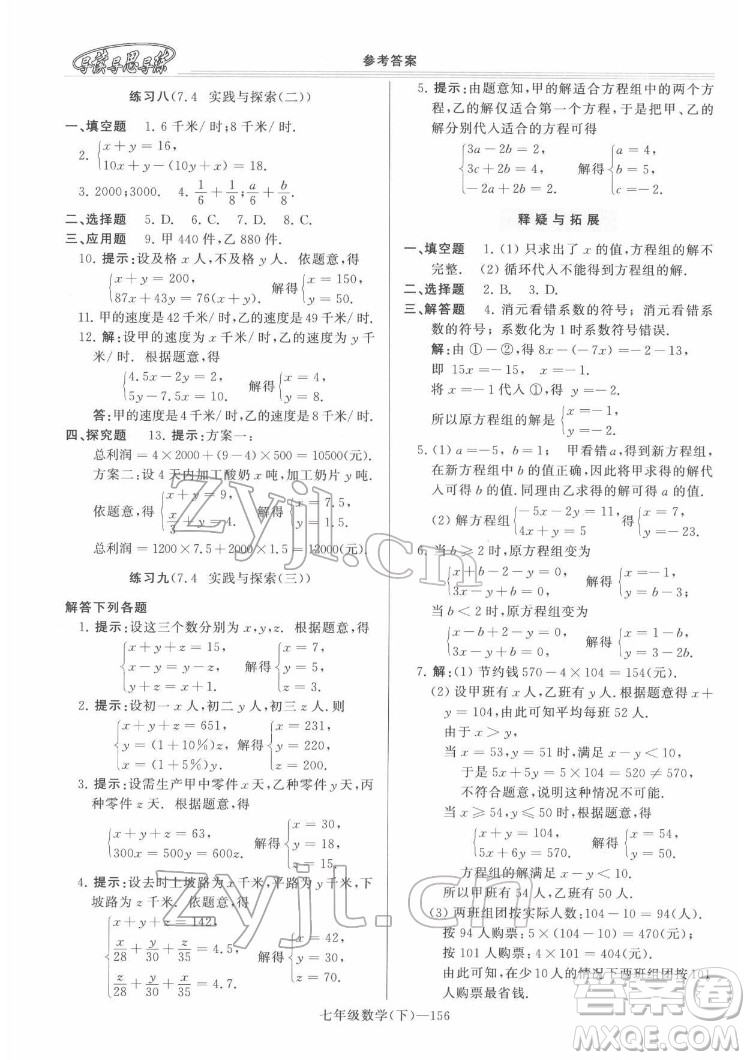 导读导思导练
参考答案
练习八(7.4 实践与探索(二))
一、填空题 1. 6 千米/时;8 千米/时.
2. {x+y=16,
10x+y-(10y+x)=18.
3. 2000;3000. 4. 1/6+1/8;a/6+b/8
二、选择题 5. D. 6. C. 7. D. 8. D.
三、应用题 9. 甲 440 件,乙 880 件.
10. 提示:设及格 x 人,不及格 y 人. 依题意,得
{x+y=200, 解得{x=150,
87x+43y=76x. y=50.
11. 甲的速度是 21 千米/时,乙的速度是 49 千米/时.
12. 解:设甲的速度为 x 千米/时,乙的速度为 y 千
米/时. 根据题意,得
{4.5x-2y=2, 解得{x=4,
5y-7.5x=10. y=8.
答:甲的速度是 4 千米/时,乙的速度是 8 千米/时.
四、探究题 13. 提示:方案一:
总利润=4×2000+(9-4)×500=10500(元).
方案二:设 4 天内加工酸奶 x 吨,加工奶片 y 吨.
依题意,得{x+y=9, 解得{x=7.5,
x/3+y=4. y=1.5.
总利润=1200×7.5+2000×1.5=12000(元).
练习九(7.4 实践与探索(三))
解答下列各题
1. 提示:设这三个数分别为 x,y,z. 根据题意,得
{x+y+z=15, 解得{x=7,
x-y=y-z, y=5,
x=y+z+1. z=3.
2. 提示:设初一 x 人,初二 y 人,初三 z 人. 则
{x+y+z=651, 解得{x=231,
y=(1+10%)z, y=220,
x=(1+5%)y. z=200.
3. 提示:设需生产甲中零件 x 天,乙种零件 y 天,丙
种零件 z 天. 根据题意,得
{x+y+z=63, 解得{x=30,
300x=500y=600z. y=18,
z=15.
4. 提示:设去时上坡路为 x 千米,平路为 y 千米,下
坡路为 z 千米. 根据题意,得
{x+y+z=142, 解得{x=42,
x/28+y/30+z/35=4.5, y=30,
z/28+y/30+x/35=4.7. z=70.
5. 提示:由题意知,甲的解适合方程组中的两个方
程,乙的解仅适合第一个方程,分别把甲、乙的
解分别代入适合的方程可得
{3a-2b=2, 解得{a=4,
3c+2=-2, b=5,
-2a+2b=2. c=-2.
释疑与拓展
一、填空题 1. (1) 只求出了 x 的值,方程组的解不
完整. (2) 循环代入不能得到方程组的解.
二、选择题 2. B. 3. D.
三、解答题 4. 消元看错系数的符号;消元看错系
数的符号;系数化为 1 时系数符号错误.
解:由①-②,得 8x-(-7x)=-2-13,
即 15x=-15, x=-1.
将 x=-1 代入①,得 y=2.
所以原方程组的解是{x=-1,
y=2.
5. (1) a=-5, b=1; 甲看错 a,得到新方程组,
在新方程组中 b 的值正确,因此将甲求得的解代
入可得 b 的值. 同理由乙求得的解代入可求 a.
(2) 解方程组{-5x-2y=11, 得{x=7,
3x+y=-2, y=-23.
6. 当 b≥2 时,原方程组变为
{x+y=4, 解得{x=-2,
3x-y+b=2. y=6.
当 b<2 时,原方程组变为
7. 解:(1) 节约钱 570-4×104=154(元).
(2) 设甲班有 x 人,乙班有 y 人. 根据题意,得 x+
y=104,由此可知平均每班 52 人.
由于 x>y,
当 x=53 时,y=51,满足 x+y=104,
此时 5x+5y=5(x+y)=520≠570.
不符合题意,说明这种情况不可能.
当 x≥54, y≤50 时,根据题意,得
{x+y=104, 解得{x=54,
5x+6y=570. y=50.
所以甲班有 54 人,乙班有 50 人.
(3) 两班组团按实际人数:104-10=94(人).
按 94 人购票:5×94=470(元);
按 101 人购票:4×101=404(元).
由此可知,在少 10 人的情况下两班组团按 101
人购票最省钱.
七年级数学(下)—156
Zyjl.cn
Zyjl.cn
答案圈